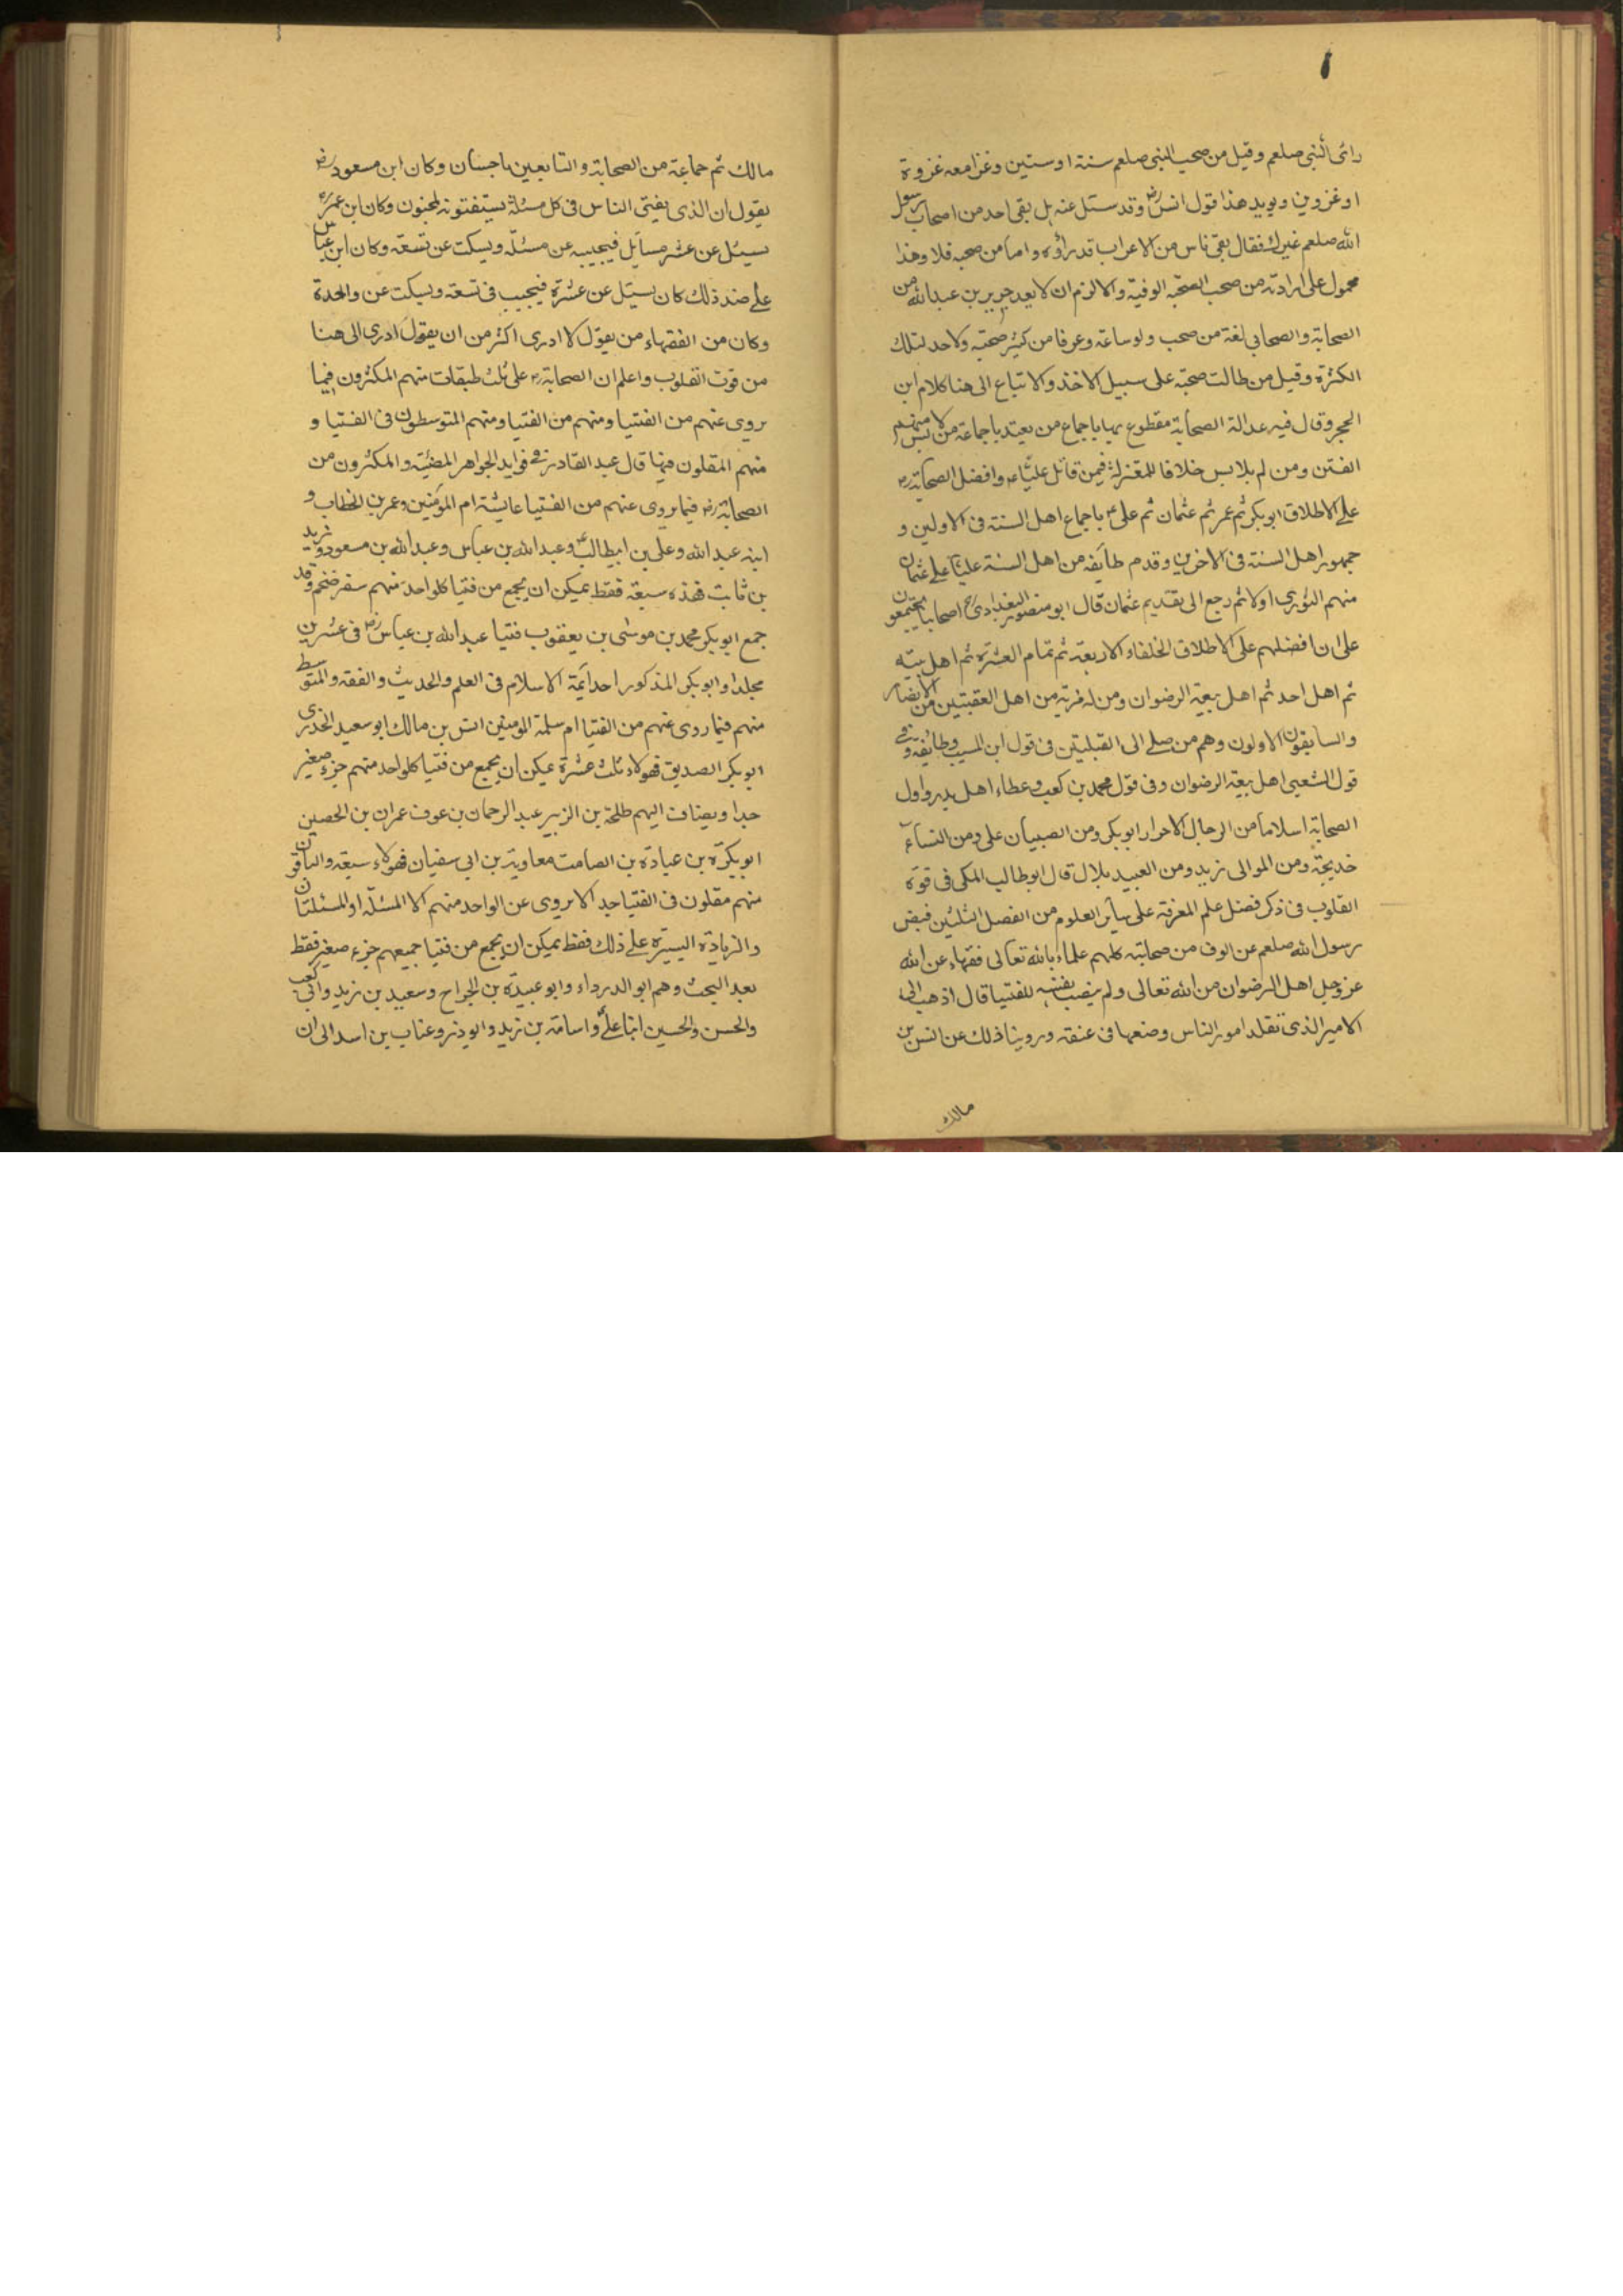 رائى النبي صلعم وقيل من صحب النبي صلعم سنة او ستين وغزا معه غزوة
او غزوين ويويد هذا قول انس رض وقد سئل عنه هل بقى احد من اصحاب رسول
الله صلعم غيرك فقال بقى ناس من الاعراب قد راؤه واما من صحبه فلا وهذا
محمول على ارادته من صحب الصحبة الوفية والا لزم ان لا يعد جرير بن عبد الله من
الصحابة والصحابي لغة من صحب ولو ساعة وعرفا من كثر صحبته ولا حد لتلك
الكثرة وقيل من طالت صحبته على سبيل الاخذ والاتباع الى هنا كلام ابن
الحجر وقال فيه عدالة الصحابة مقطوع بها باجماع من يعتد باجماعة من لابس منهم
الفتن ومن لم يلابس خلافا للمعتزلة فيمن قاتل عليا ع وافضل الصحابة رض
على الاطلاق ابو بكر ثم عمر ثم عثمان ثم على ع باجماع اهل السنة فى الاولين و
جمهور اهل السنة فى الاخرين وقدم طايفه من اهل السنة عليا على عثمان
منهم الثوري اولا ثم رجع الى تقديم عثمان قال ابو منصور البغدادى اصحابنا مجتمعون
على ان افضلهم على الاطلاق الخلفاء الاربعة ثم تمام العشرة ثم اهل
ثم اهل احد ثم اهل بيعة الرضوان ومن له مزية من اهل العقبتين من الانصار
والسابقون الاولون وهم من صلى الى القبلتين فى قول ابن المسيب وطايفة وفى
قول الشعبى اهل بيعة الرضوان وفى قول محمد بن كعب وعطاء اهل بدر واول
الصحابة اسلاما من الرجال الاحرار ابو بكر ومن الصبيان على ومن النساء
خديجة ومن الموالى زيد ومن العبيد بلال قال ابو طالب المكى فى قوة
القلوب فى ذكر فضل علم المعرفة على ساير العلوم من الفصل الثلثين قبض
رسول الله صلعم عن الوف من صحابته كلهم علماء بالله تعالى فقهاء عن الله
عز وجل اهل الرضوان من الله تعالى ولم ينصب نفسه للفتيا قال اذهب الى
الامير الذى تقلد امور الناس وضعها فى عنقه وروينا ذلك عن انس بن
مالك
مالك ثم جماعة من الصحابة والتابعين باحسان وكان ابن مسعود رض
يقول ان الذى يفتى الناس فى كل مسئلة يستفتونه لمجنون وكان ابن عمر
يسئل عن عشر مسايل فيجيبه عن مسئله ويسكت عن تسعة وكان ابن عباس
على ضد ذلك كان يسئل عن عشرة فيجيب فى تسعة ويسكت عن واحدة
وكان من الفقهاء من يقول لا ادرى اكثر من ان يقول ادرى الى هنا
من قوت القلوب واعلم ان الصحابة رض على ثلث طبقات منهم المكثرون فيما
يروى عنهم من الفتيا ومنهم من الفتيا ومنهم المتوسطون فى الفتيا و
منهم المقلون فيها قال عبد القادر فى فوايد الجواهر المضئية والمكثرون من
الصحابة رض فيما يروى عنهم من الفتيا عايشة ام المؤمنين وعمر بن الخطاب و
ابنه عبد الله وعلى بن ابيطالب ع وعبد الله بن عباس وعبد الله بن مسعود وزيد
بن ثابت فهذه سبعة فقط يمكن ان يجمع من فتيا كلواحد منهم سفر ضخم وقد
جمع ابو بكر محمد بن موسى بن يعقوب فتيا عبد الله بن عباس رض فى عشرين
مجلدا وابو بكر المذكور احد ايمة الاسلام فى العلم والحديث والفقه والمتوسط
منهم فيما روى عنهم من الفتيا ام سلمة المومنين انس بن مالك ابو سعيد الخدرى
ابو بكر الصديق فهولاء ثلث عشرة يمكن ان يجمع من فتيا كلواحد منهم جزء صغير
جدا ويضاف اليهم طلحة بن الزبير عبد الرحمان بن عوف عمران بن الحصين
ابو بكرة بن عبادة بن الصامت معاوية بن ابى سفيان فهولاء سبعة والباقون
منهم مقلون فى الفتيا جدا لا يروى عن الواحد منهم الا المسئله او المسئلتان
والزيادة اليسيرة على ذلك فقط يمكن ان يجمع من فتيا جميعهم جزء صغير فقط
بعد البحث وهم ابو الدرداء وابو عبيدة بن الجراح وسعيد بن زيد وابى كعب
والحسن والحسين ابنا على ع واسامة بن زيد وابو ذر وعتاب بن اسد الى ان